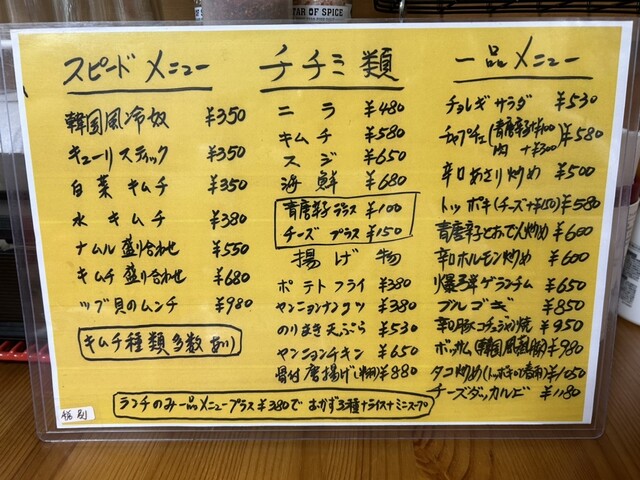 TAR OF SPICE
スピードメニュー
韓国風冷奴 ¥350
キューリスティック ¥350
白菜キムチ ¥350
水キムチ ¥380
ナムル盛り合わせ ¥550
キムチ盛り合わせ ¥680
ツブ貝のムンチ ¥980
キムチ種類多数あり
チヂミ類
ニラ ¥480
キムチ ¥580
スジ ¥650
海鮮 ¥680
青唐辛子プラス ¥100
チーズプラス ¥150
揚げ物
ポテトフライ ¥380
ヤンニョンナゲツ ¥380
のりまき天ぷら ¥530
ヤンニョンチキン ¥650
骨付唐揚げ ¥880
一品メニュー
チョレギサラダ ¥530
チャプチェ(青唐辛子+¥100 肉+¥300) ¥580
辛口あさり炒め ¥500
トッポギ(チーズ+¥150) ¥580
青唐辛子とおでん炒め ¥600
辛口ホルモン炒め ¥600
爆弾ゲランチム ¥650
プルコギ ¥850
辛口豚コチュジャン焼 ¥950
ボッサム(韓国風蒸豚) ¥980
タコ炒め ¥1050
チーズダッカルビ ¥1180
ランチのみ一品メニュープラス¥380でおかず3種+ライス+ミニスープ
税別